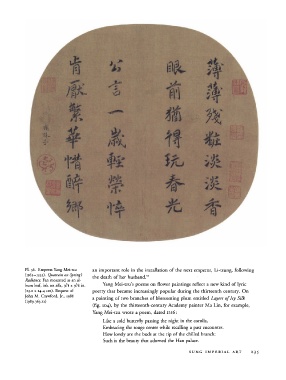 薄薄殘粧淡淡香
眼前猶得玩春光
公言一歲輕榮悴
肯厭繁華惜醉鄉
Empress Yang Mei-tzu
Radiance. Fan mounted as an al-
bum leaf, ink on silk,
Bequest of
John M. Crawford, Jr., 1988
an important role in the installation of the next emperor, Li-tsung, following
the death of her husband.
Yang Mei-tzu's poems on flower paintings reflect a new kind of lyric
poetry that became increasingly popular during the thirteenth century. On
a painting of two branches of blossoming plum entitled Layers of Icy Silk
by the thirteenth-century Academy painter Ma Lin, for example,
Yang Mei-tzu wrote a poem, dated 1216:
Like a cold butterfly passing the night in the corolla,
Embracing the rouge center while recalling a past encounter.
How lovely are the buds at the tip of the chilled branch:
Such is the beauty that adorned the Han palace.
SUNG IMPERIAL ART 235